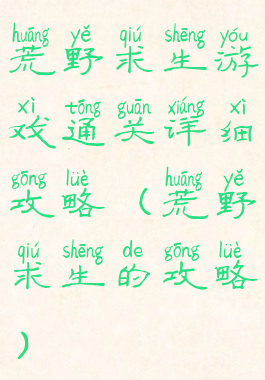 huāng yě qiú shēng yóu
荒野求生游
xì tōng guān xiáng xì
戏通关详细
gōng lüè huāng yě
攻略（荒野
qiú shēng de gōng lüè
求生的攻略
）